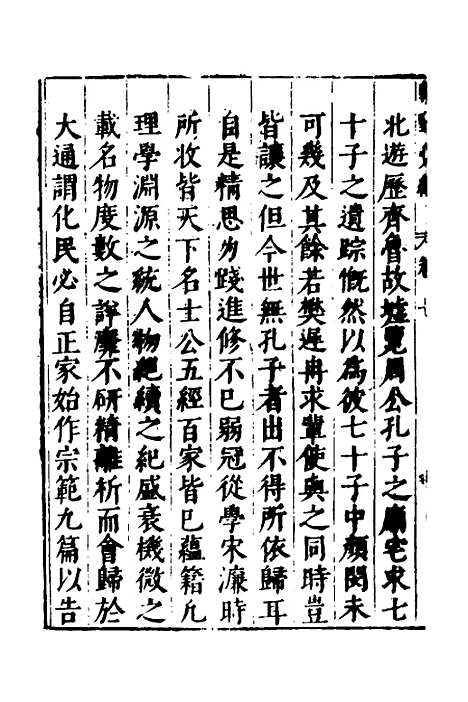 北遊歷齊魯故墟覽周公孔子之廟宅求七
十子之遺踪慨然以爲彼七十子中顏閔未
可幾及其餘若樊遲冉求輩使與之同時豈
皆讓之但今世無孔子者出不得所依歸耳
自是精思力踐進修不已弱冠從學宋濂時
所收皆天下名士公五經百家皆已蘊籍凡
理學淵源之統人物絕續之紀盛衰機微之
載名物度數之詳靡不研精離析而會歸於
大通謂化民必自正家始作宗範九篇以告